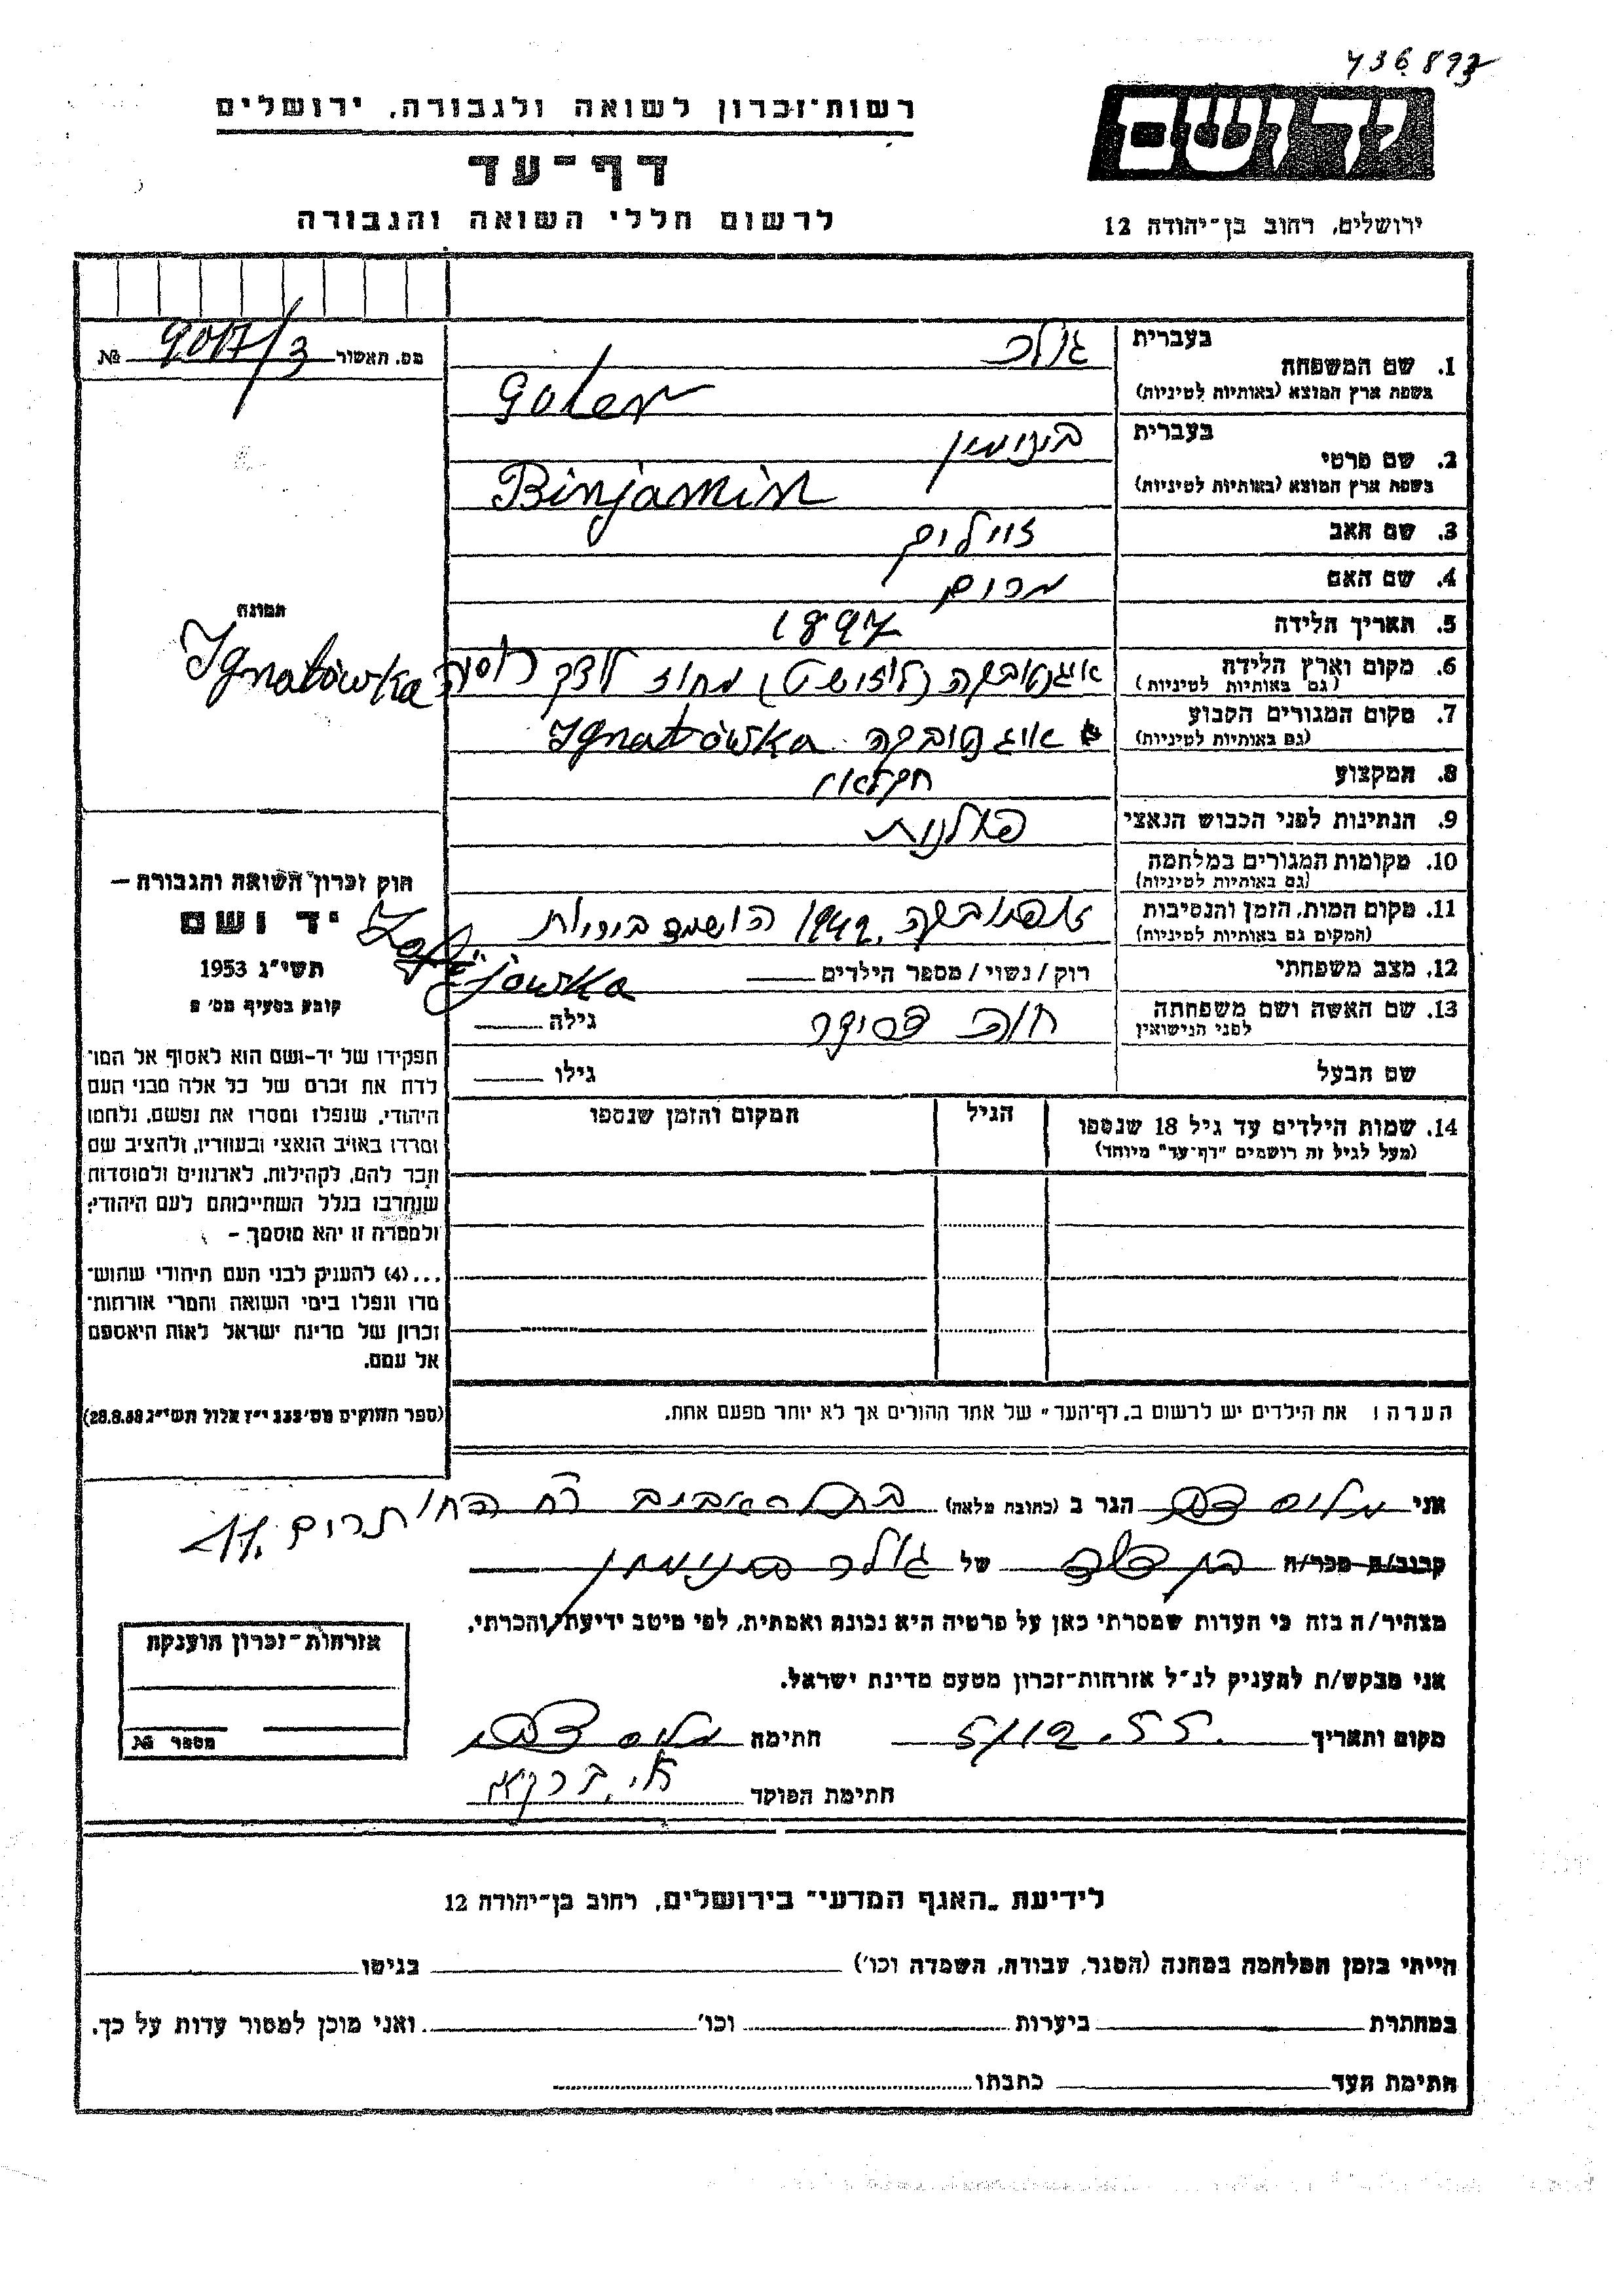 436.893
יד ושם
רשות־זכרון לשואה ולגבורה, ירושלים
דף־עד
לרשום חללי השואה והגבורה
ירושלים, רחוב בן־יהודה 12
מס. תאשור 9017/3 №
1. שם המשפחה
בעברית גולר
בשפת ארץ המוצא (באותיות לטיניות) Goler
2. שם פרטי
בעברית בינימין
בשפת ארץ המוצא (באותיות לטיניות) Binjamin
3. שם האב
4. שם האם מרים
5. תאריך הלידה 1897
6. מקום וארץ הלידה
(גם באותיות לטיניות)
איגנטובקה (לוזישט) מחוז לוצק רוסיה Ignatówka
7. מקום המגורים הקבוע
(גם באותיות לטיניות)
איגנטובקה Ignatówka
8. המקצוע חקלאי
9. הנתינות לפני הכבוש הנאצי פולנית
10. מקומות המגורים במלחמה
(גם באותיות לטיניות)
11. מקום המות, הזמן והנסיבות
(המקום גם באותיות לטיניות)
זופיובקה, 1942 הושמד ביריות
Zofijówka
12. מצב משפחתי
רוק / נשוי / מספר הילדים
13. שם האשה ושם משפחתה
לפני הנישואין
חוה
גילה
שם הבעל
גילו
14. שמות הילדים עד גיל 18 שנספו
(מעל לגיל זה רושמים "דף־עד" מיוחד)
הגיל
המקום והזמן שנספו
הערה: את הילדים יש לרשום ב„דף־העד" של אחד ההורים אך לא יותר מפעם אחת.
תמונה
חוק זכרון השואה והגבורה –
יד ושם
תשי"ג 1953
קובע בסעיף מס' 2
תפקידו של יד-ושם הוא לאסוף אל המו־
לדת את זכרם של כל אלה מבני העם
היהודי, שנפלו ומסרו את נפשם, נלחמו
ומרדו באויב הנאצי ובעוזריו, ולהציב שם
וזכר להם, לקהילות, לארגונים ולמוסדות
שנחרבו בגלל השתייכותם לעם היהודי;
ולמטרה זו יהא מוסמך –
...(4) להעניק לבני העם היהודי שהוש־
מדו ונפלו בימי השואה והמרי אזרחות־
זכרון של מדינת ישראל לאות היאספם
אל עמם.
(ספר החוקים מס' 132 י"ז אלול תשי"ג 28.8.53)
אני הגר ב (כתובת מלאה) בתל אביב רח החותרים 11.
קרוב/ה מכר/ה בן דודה של גולר בנימין
מצהיר/ה בזה כי העדות שמסרתי כאן על פרטיה היא נכונה ואמתית, לפי מיטב ידיעתי והכרתי.
אני מבקש/ת להעניק לנ"ל אזרחות־זכרון מטעם מדינת ישראל.
מקום ותאריך 5/12.55. חתימה
חתימת הפוקד
אזרחות־זכרון הוענקה
מספר №
לידיעת „האגף המדעי" בירושלים, רחוב בן־יהודה 12
הייתי בזמן המלחמה במחנה (הסגר, עבודה, השמדה וכו') בגיטו
במחתרת ביערות וכו' ואני מוכן למסור עדות על כך.
חתימת העד כתבתו